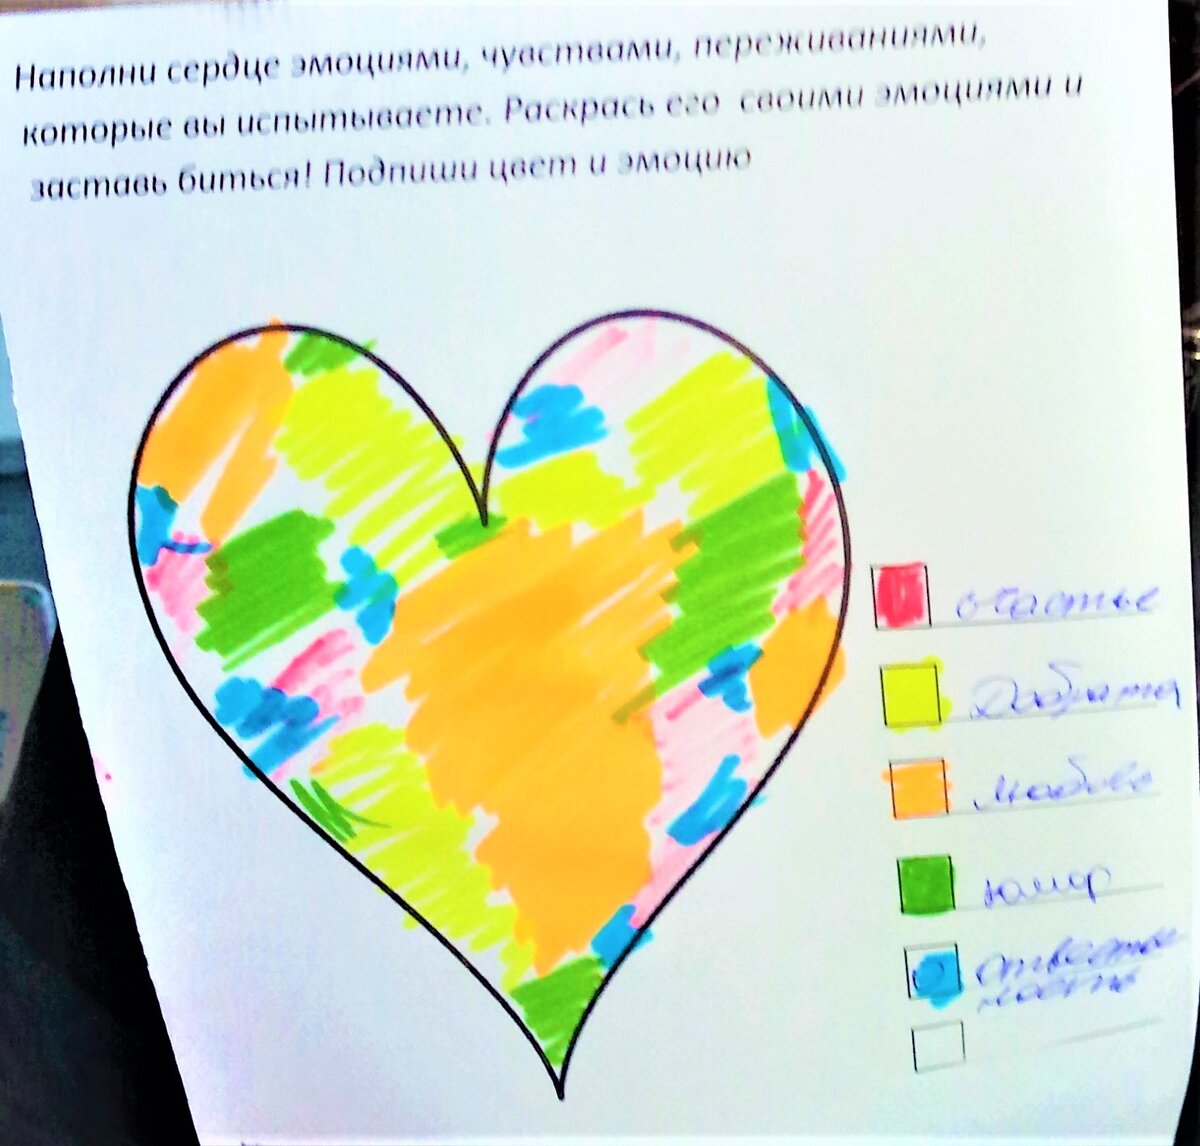 Наполни сердце эмоциями, чувствами, переживаниями,
которые вы испытываете. Раскрась его своими эмоциями и
заставь биться! Подпиши цвет и эмоцию
счастье
Доброта
Любовь
юмор
ответствен
ность